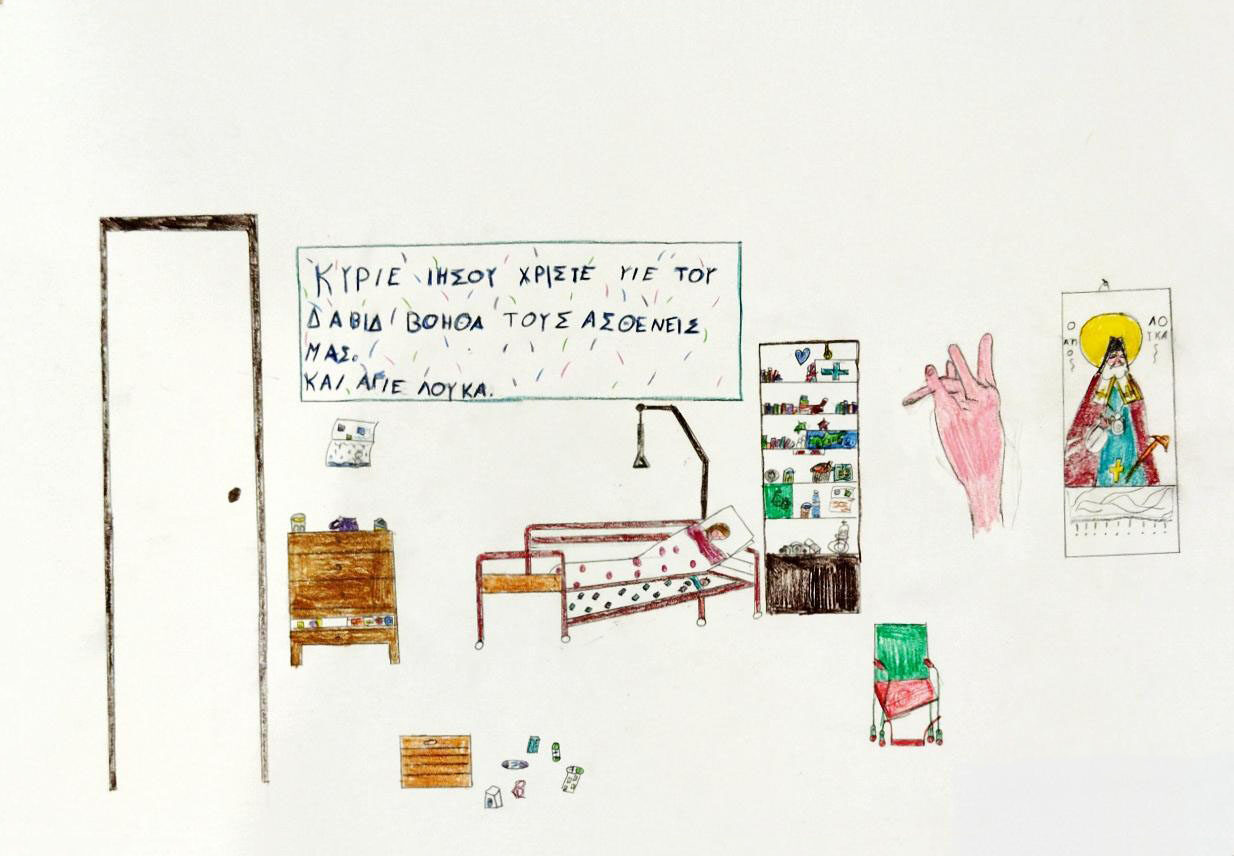 ΚΥΡΙΕ ΙΗΣΟΥ ΧΡΙΣΤΕ ΥΙΕ ΤΟΥ
ΔΑΒΙΔ ΒΟΗΘΑ ΤΟΥΣ ΑΣΘΕΝΕΙΣ
ΜΑΣ.
ΚΑΙ ΑΓΙΕ ΛΟΥΚΑ.
Ο
ΛΟ
ΥΚΑ